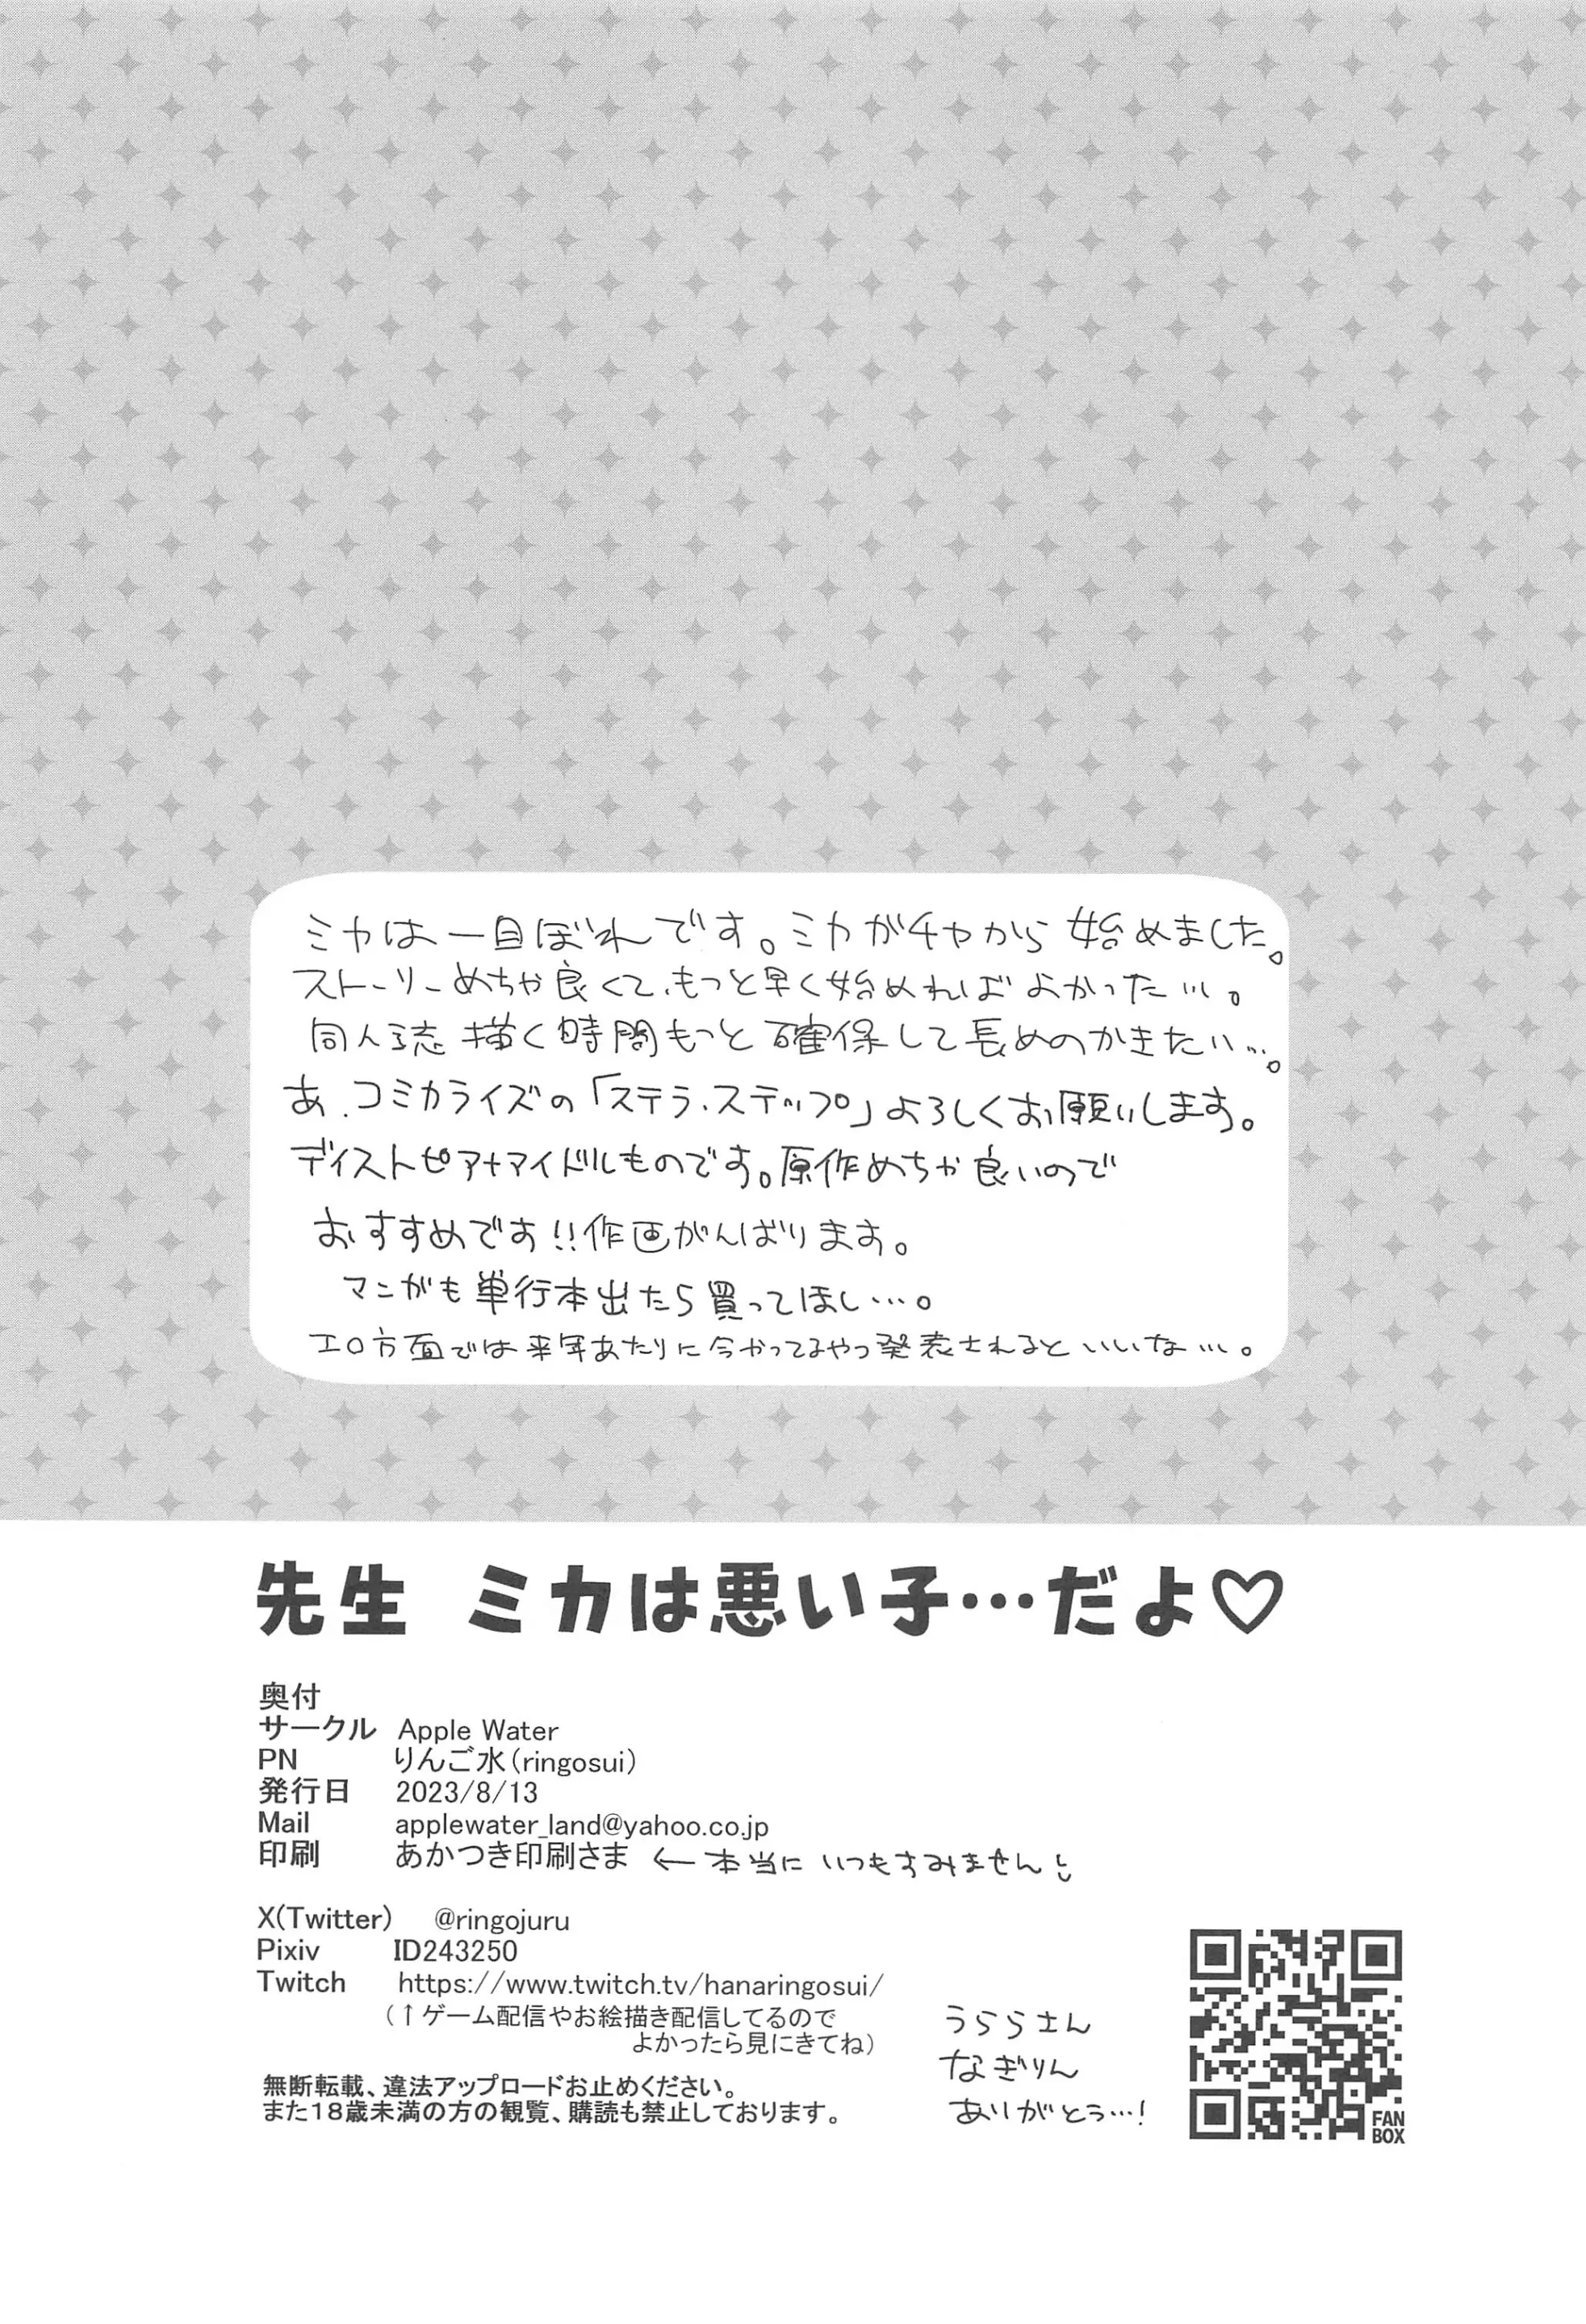 ミカは一目ぼれです。ミカガチャから始めました。
ストーリーめちゃ良くて、もっと早く始めればよかった…。
同人誌描く時間もっと確保して長めのかきたい…。
あ、コミカライズの「ステラ・ステップ」よろしくお願いします。
ディストピア+アイドルものです。原作めちゃ良いので
おすすめです!!作画がんばります。
マンガも単行本出たら買ってほしい…。
エロ方面では来年あたりに今かってるやつ発表されるといいな…。
先生 ミカは悪い子…だよ♡
奥付
サークル Apple Water
PN りんご水(ringosui)
発行日 2023/8/13
Mail applewater_land@yahoo.co.jp
印刷 あかつき印刷さま ←本当にいつもすみません
X(Twitter) @ringojuru
Pixiv ID243250
Twitch https://www.twitch.tv/hanaringosui/
(↑ゲーム配信やお絵描き配信してるので
よかったら見にきてね)
無断転載、違法アップロードお止めください。
また18歳未満の方の観覧、購読も禁止しております。
うららさん
なぎりん
ありがとう…!
FAN
BOX